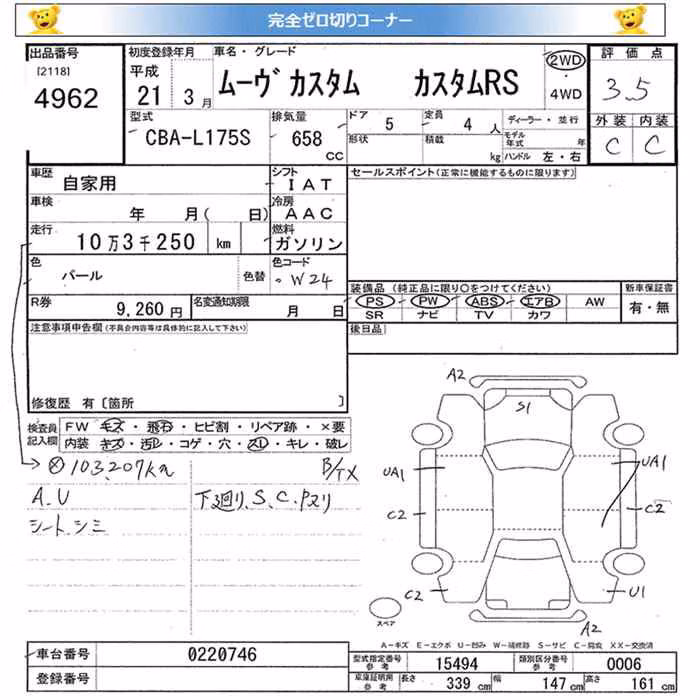 完全ゼロ切りコーナー
出品番号
[2118]
4962
初度登録年月
平成
21 3月
車名・グレード
ムーヴ カスタム カスタムRS
2WD
・
4WD
評価点
3.5
外装 内装
C C
型式
CBA-L175S
排気量
658
CC
ドア
5
形状
定員
4人
積載
kg
ディーラー・並行
モデル年式 年
ハンドル 左・右
車歴
自家用
シフト
IAT
車検
年 月( 日)
冷房
AAC
走行
10万3千250 km
燃料
ガソリン
セールスポイント(正常に機能するものに限ります)
色
パール
色替
色コード
W24
R券
9,260円
名変通知期限
月 日
装備品 (純正品に限り○をつけてください)
PS PW ABS エアB AW
SR ナビ TV カワ
新車保証書
有・無
注意事項申告欄(不具合内容等は具体的に記入して下さい)
後日品
修復歴 有〔箇所 〕
検査員記入欄
FW キズ・飛石・ヒビ割・リペア跡・×要
内装 キズ・汚レ・コゲ・穴・スレ・キレ・破レ
103,207km
B/TX
A.U
下廻り、S、C、Pヌリ
シートシミ
A2
S1
UA1
UA1
C2
C2
C2
U1
A2
スペア
A-キズ E-エクボ U-凹み W-補修跡 S-サビ C-腐食 XX-交換済
車台番号
0220746
登録番号
型式指定番号 参考
15494
類別区分番号 参考
0006
車庫証明用 参考
長さ 339cm
幅 147cm
高さ 161cm